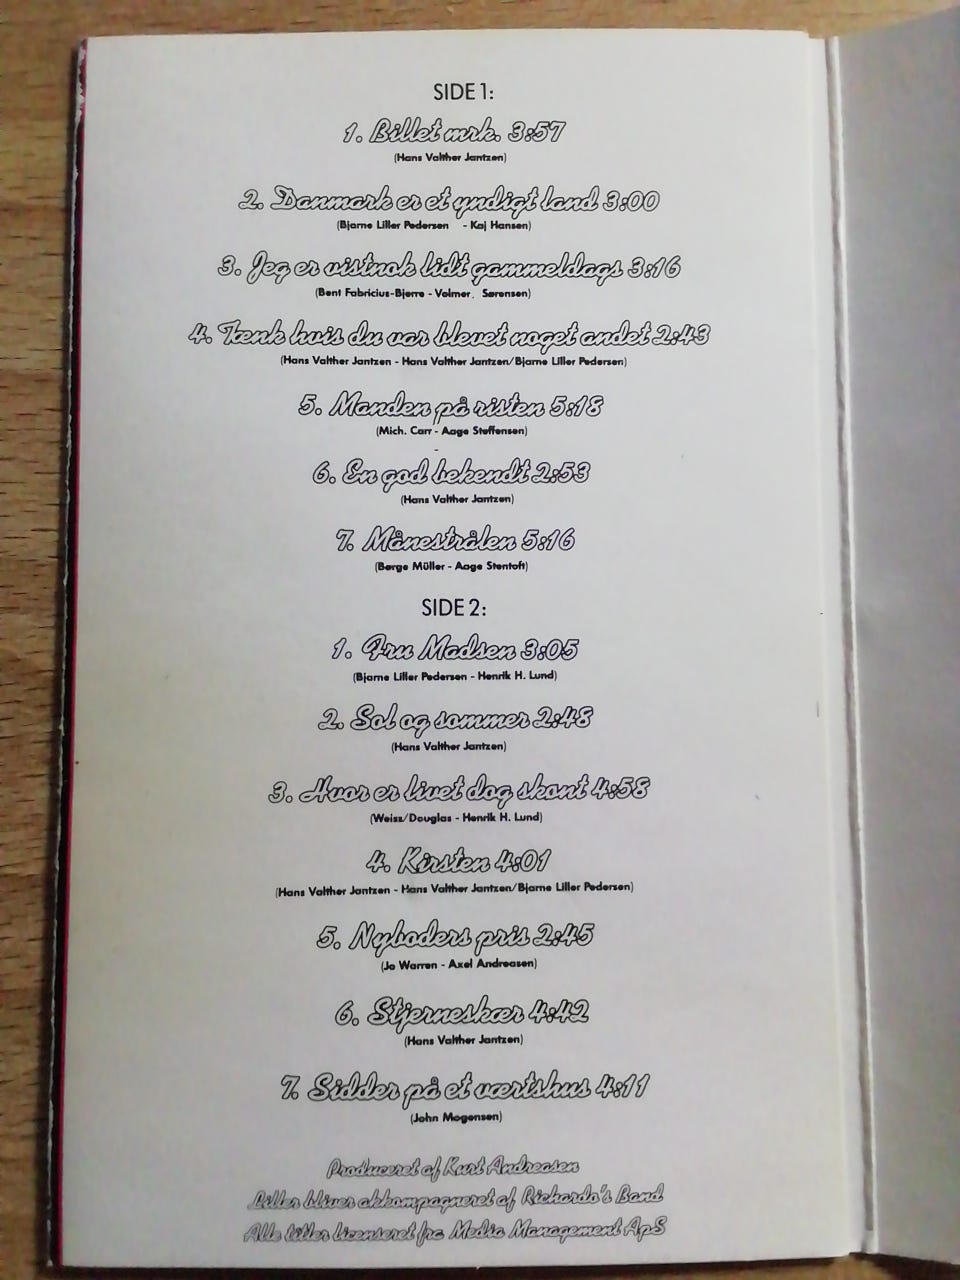 SIDE 1:
1. Billet mrk. 3:57
(Hans Valther Jantzen)
2. Danmark er et yndigt land 3:00
(Bjarne Liller Pedersen - Kaj Hansen)
3. Jeg er vistnok lidt gammeldags 3:16
(Bent Fabricius-Bjerre - Volmer. Sørensen)
4. Tænk hvis du var blevet noget andet 2:43
(Hans Valther Jantzen - Hans Valther Jantzen/Bjarne Liller Pedersen)
5. Manden på risten 5:18
(Mich. Carr - Aage Steffensen)
6. En god bekendt 2:53
(Hans Valther Jantzen)
7. Månestrålen 5:16
(Børge Müller - Aage Stentoft)
SIDE 2:
1. Fru Madsen 3:05
(Bjarne Liller Pedersen - Henrik H. Lund)
2. Sol og sommer 2:48
(Hans Valther Jantzen)
3. Hvor er livet dog skønt 4:58
(Weiss/Douglas - Henrik H. Lund)
4. Kirsten 4:01
(Hans Valther Jantzen - Hans Valther Jantzen/Bjarne Liller Pedersen)
5. Nyboders pris 2:45
(Jo Warren - Axel Andreasen)
6. Stjerneskær 4:42
(Hans Valther Jantzen)
7. Sidder på et værtshus 4:11
(John Mogensen)
Produceret af Kurt Andreasen
Liller bliver akkompagneret af Richardo's Band
Alle titler licenseret fra Media Management ApS